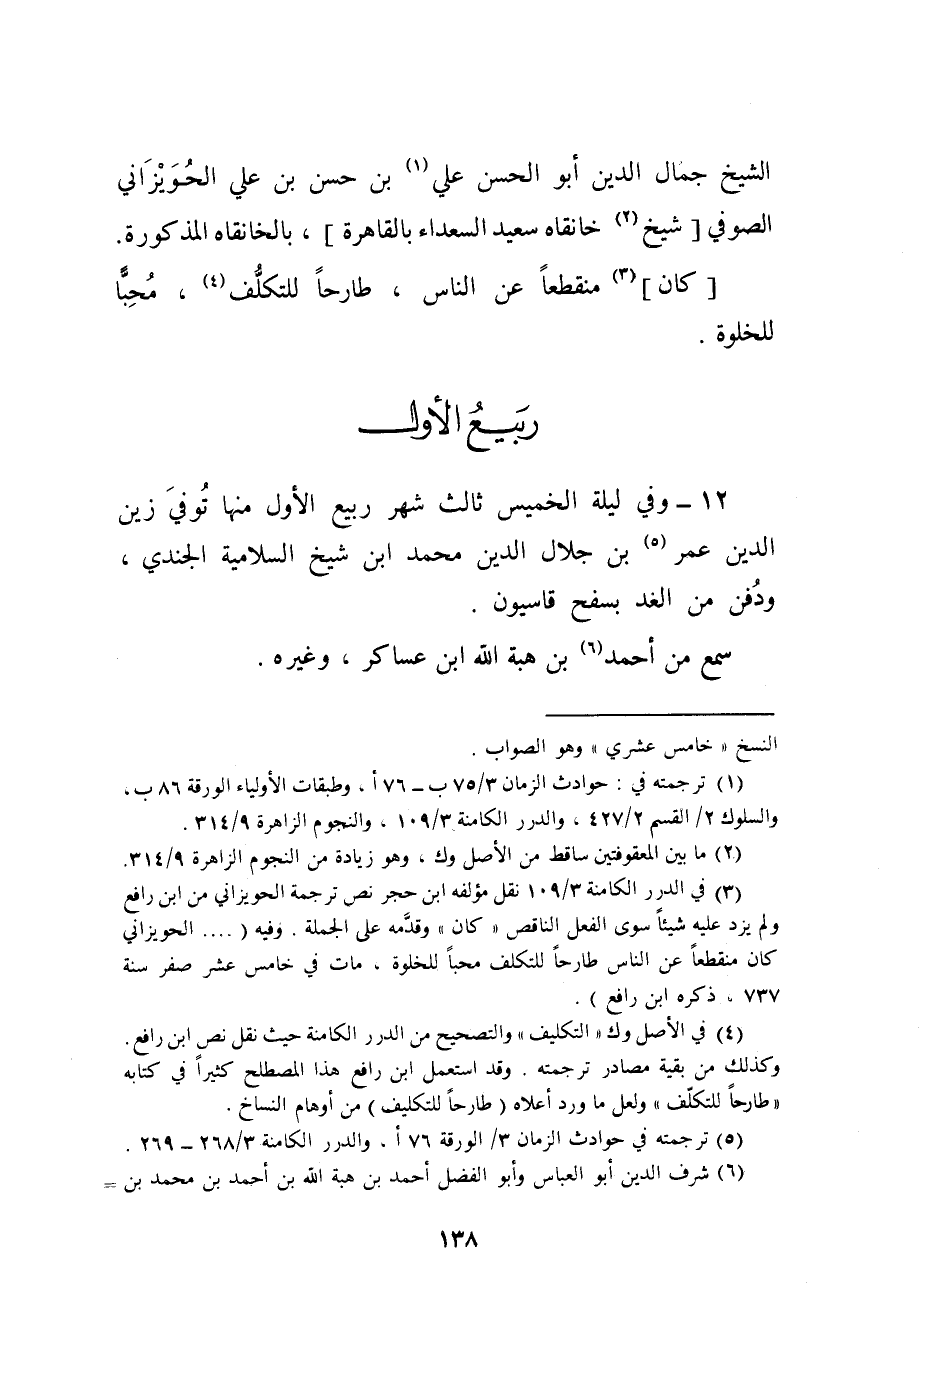 الشيخ جمال الدين أبو الحسن علي(١) بن حسن بن علي الحُوَيْزَاني
الصوفي [ شيخ(٢) خانقاه سعيد السعداء بالقاهرة ] ، بالخانقاه المذكورة.
[ كان ](٣) منقطعاً عن الناس ، طارحاً للتكلُّف(٤) ، مُحِبًّا
للخلوة .
ربيعُ الأول
١٢ ـ وفي ليلة الخميس ثالث شهر ربيع الأول منها تُوفيَ زين
الدين عمر (٥) بن جلال الدين محمد ابن شيخ السلامية الجندي ،
ودُفن من الغد بسفح قاسيون .
سمع من أحمد(٦) بن هبة الله ابن عساكر ، وغيره .
النسخ « خامس عشري » وهو الصواب .
(١) ترجمته في : حوادث الزمان ٧٥/٣ ب ـ ٧٦ أ ، وطبقات الأولياء الورقة ٨٦ ب ،
والسلوك ٢/ القسم ٤٢٧/٢ ، والدرر الكامنة ١٠٩/٣ ، والنجوم الزاهرة ٣١٤/٩ .
(٢) ما بين المعقوفتين ساقط من الأصل وك ، وهو زيادة من النجوم الزاهرة ٣١٤/٩.
(٣) في الدرر الكامنة ١٠٩/٣ نقل مؤلفه ابن حجر نص ترجمة الحويزاني من ابن رافع
ولم يزد عليه شيئاً سوى الفعل الناقص « كان » وقدَّمه على الجملة . وفيه ( .... الحويزاني
كان منقطعاً عن الناس طارحاً للتكلف محباً للخلوة ، مات في خامس عشر صفر سنة
٧٣٧ ، ذكره ابن رافع ) .
(٤) في الأصل وك « التكليف » والتصحيح من الدرر الكامنة حيث نقل نص ابن رافع.
وكذلك من بقية مصادر ترجمته . وقد استعمل ابن رافع هذا المصطلح كثيراً في كتابه
« طارحاً للتكلّف » ولعل ما ورد أعلاه ( طارحاً للتكليف ) من أوهام النساخ .
(٥) ترجمته في حوادث الزمان ٣/ الورقة ٧٦ أ ، والدرر الكامنة ٢٦٨/٣ ـ ٢٦٩ .
(٦) شرف الدين أبو العباس وأبو الفضل أحمد بن هبة الله بن أحمد بن محمد بن =
١٣٨